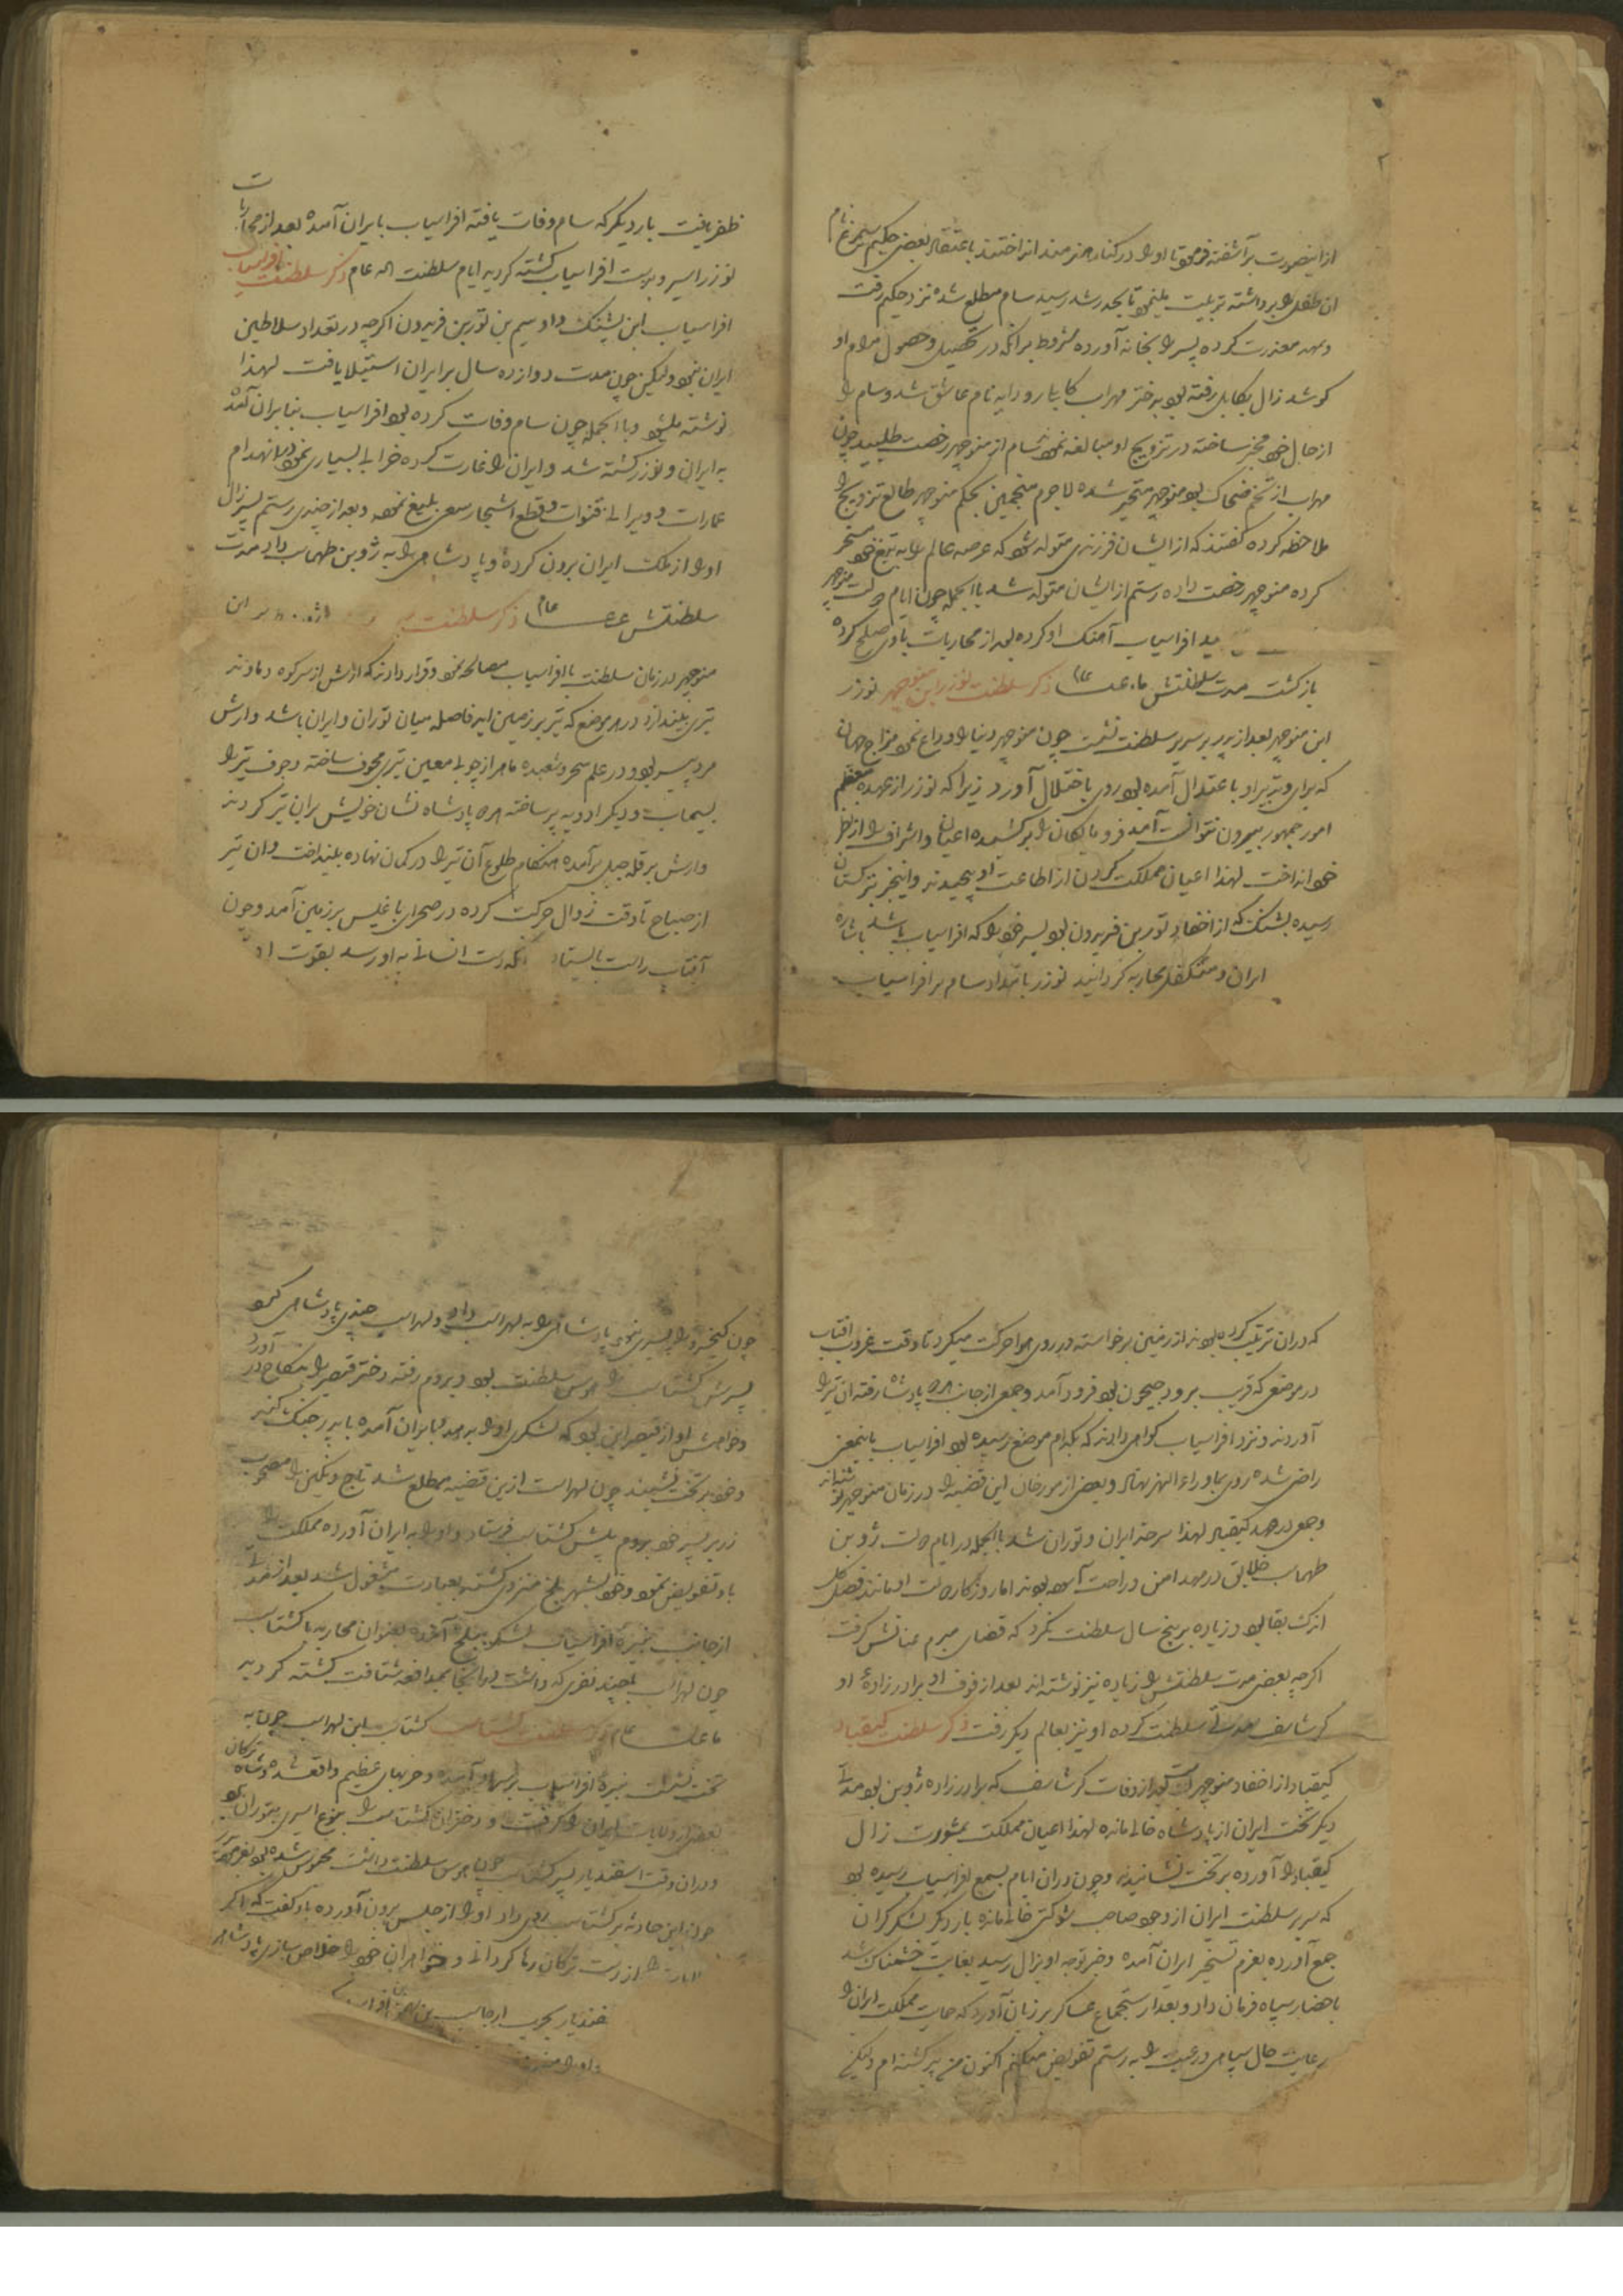 ازینصورت برآشفته فرمود تا او را در کنار هنرمند انداختند باعتقاد بعضی حکیم سیمرغ نام
ان طفل را برداشته تربیت مینمود تا بحد رشد رسید سام مطلع شده نزد حکیم رفت
و معذرت کرده پسر را بخانه آورده مشروط برانکه در تحصیل و حصول مرام او
کوشد زال بکابل رفته بود بدختر مهراب کابلی رودابه نام عاشق شد و سام را
از حال خود مخبر ساخته در تزویج او مبالغه نمود سام از منوچهر رخصت طلبید چون
مهراب از تخم ضحاک بود منوچهر متحیر شده لاجرم منجمین بحکم منوچهر طالع تزویج را
ملاحظه کرده گفتند که از ایشان فرزندی متولد شود که عرصه عالم را به تیغ خود مسخر
کرده منوچهر رخصت داده رستم از ایشان متولد شد باالجمله چون ایام دولت منوچهر
افراسیاب آهنک او کرده بعد از محاربات با وی صلح کرده
بازگشت مدت سلطنتش عام ذکر سلطنت نوذر ابن منوچهر نوذر
ابن منوچهر بعد از پدر بر سریر سلطنت نشست چون منوچهر دنیا را وداع نمود مزاج جهان
که برای و تدبیر او باعتدال آمده بود روی باختلال آورد زیرا که نوذر از عهده معظم
امور جمهور بیرون نتوانست آمد فرومایکان را برکشیده اعیان و اشراف را از نظر
خود انداخت لهذا اعیان مملکت کردن از اطاعت او پیچیدند و اینخبر بترکستان
رسیده پشنک که از احفاد تور بن فریدون بود پسر خود را که افراسیاب باشد
ایران و متکفل محاربه کردانید نوذر بامداد سام بر افراسیاب
ظفر یافت بار دیگر که سام وفات یافته افراسیاب بایران آمده بعد از محاربات
نوذر اسیر و بدست افراسیاب کشته کردید ایام سلطنت عام ذکر سلطنت افراسیاب
افراسیاب ابن پشنک دادسیم بن تور بن فریدون اکرچه در تعداد سلاطین
ایران نبود ولیکن چون مدت دوازده سال بر ایران استیلا یافت لهذا
نوشته میشود و باالجمله چون سام وفات کرده بود افراسیاب بنابران آمد
به ایران و نوذر کشته شد و ایران را غارت کرده خرابی بسیاری نمود انهدام
عمارات و ویرانی قنوات و قطع اشجار سعی بلیغ نمود و بعد از چندی رستم پسر زال
او را از ملک ایران بیرون کرده و پادشاهی را به ژوبن طهماسب داد مدت
سلطنتش عام ذکر سلطنت
منوچهر در زمان سلطنت باافراسیاب مصالحه نمود و قرار دادند که ارش از سر کوه دماوند
تیری بیندازد در هر موضع که تیر بر زمین اید فاصله میان توران و ایران باشد و ارش
مرد پیر بود و در علم سحر و شعبده ماهر از چوبی معین تیری مجوف ساخته و جوف تیر را
بسیماب و دیکر ادویه پر ساخته هر دو پادشاه نشان خویش بران تیر کردند
و ارش بر قله جبل برآمده هنکام طلوع آن تیر را در کمان نهاده بینداخت و ان تیر
از صباح تا وقت زوال حرکت کرده در صحرای باغیس بر زمین آمد و چون
آفتاب راست بایستاد انکه دست انسانی به او رسد بقوت
که دران ترتیب کرده بودند از زمین برخاسته در روی هوا حرکت میکرد تا وقت غروب افتاب
در موضعی که قریب برود جیحون بود فرود آمد و جمعی از جانب هر دو پادشاه رفته ان تیر را
آوردند و نزد افراسیاب کواهی دادند که بکدام موضع رسیده بود افراسیاب باینمعنی
راضی شده روی بماوراءالنهر نهاد و بعضی از مورخان این قضیه را در زمان منوچهر نوشته‌اند
و جمعی در عهد کیقباد لهذا سرحد ایران و توران شد باالجمله در ایام دولت ژوبن
طهماسب خلایق در مهد امن و راحت آسوده بودند اما روزکار دولت او مانند فصل کل
اندک بقا بود و زیاده بر پنج سال سلطنت نکرد که قضای مبرم عنانش کرفت
اکرچه بعضی مدت سلطنتش را زیاده نیز نوشته‌اند بعد از فوت او برادرزاده او
کرشاسف مدتی سلطنت کرده او نیز بعالم دیکر رفت ذکر سلطنت کیقباد
کیقباد از احفاد منوچهر است بعد از وفات کرشاسف که برادرزاده ژوبن بود مدتی
دیکر تخت ایران از پادشاه خالی مانده لهذا اعیان مملکت بمشورت زال
کیقباد را آورده بر تخت نشانیدند و چون دران ایام بسمع افراسیاب رسیده بود
که سریر سلطنت ایران از وجود صاحب شوکتی خالی مانده بار دیکر لشکر کران
جمع آورده بعزم تسخیر ایران آمده و خبر توجه او بزال رسید بغایت خشمناک شد
باحضار سپاه فرمان داد و بعد از استجماع عساکر بر زبان آورد که حمایت مملکت ایران را
رعایت حال سپاهی و رعیت را به رستم تفویض میکنم اکنون من پیر کشته‌ام ولیکن
چون کیخسرو را پسری نبود پادشاهی را به لهراسب داد و لهراسب چندی پادشاهی نمود
پسرش کشتاسب را هوس سلطنت بود و بروم رفته دختر قیصر را بنکاح در آورد
و خواهش او از قیصر این بود که لشکری او را بدهد بایران آمده با پدر جنک کند
و خود بر تخت نشیند چون لهراسب ازین قضیه مطلع شد تاج و نکین را مصحوب
زریر پسر خود بروم پیش کشتاسب فرستاد و او را به ایران آورده مملکت را
باو تفویض نمود و خود بشهر بلخ منزوی کشته بعبادت مشغول شد بعد از چندی
ارجاسب نبیره افراسیاب لشکر ببلخ آورده بعنوان محاربه با کشتاسب
چون لهراسب باچند نفری که داشت بمدافعه شتافت کشته کردید
عام ذکر سلطنت کشتاسب کشتاسب ابن لهراسب چون به
تخت نشست نبیره افراسیاب بر سر او آمده و حربهای عظیم واقع شده و شاه ترکان
بعضی از ولایات ایران را کرفت و دختران کشتاسب را بنوع اسیری بتوران
و دران وقت اسفندیار پسر کشتاسب چون هوس سلطنت داشت محبوس شده بود
چون این حادثه بر کشتاسب روی داد او را از حبس بیرون آورده باو کفت که اکر
از دست ترکان رها کردانی و خواهران خود را خلاص سازی پادشاهی
اسفندیار بحرب ارجاسب